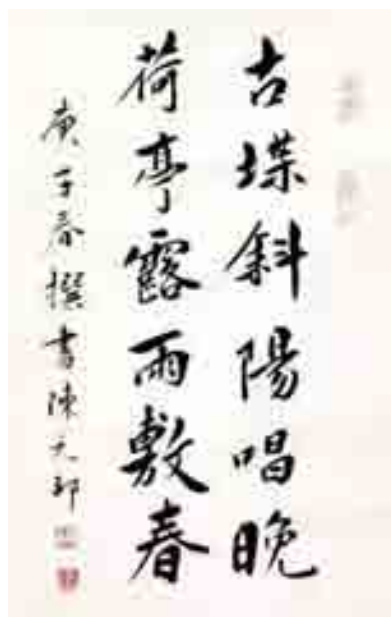 古堞斜陽唱晚
荷亭露雨敷春
庚子春撰書陳元邦